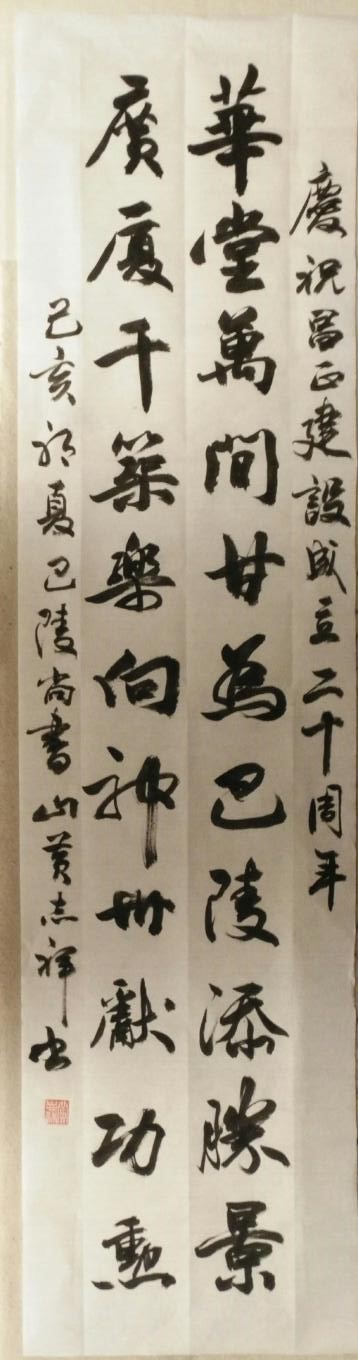 慶祝昌正建設成立二十周年
華堂萬間甘為巴陵添勝景
廣廈千築樂向神州獻功勳
己亥初夏巴陵尚書山黄志祥书